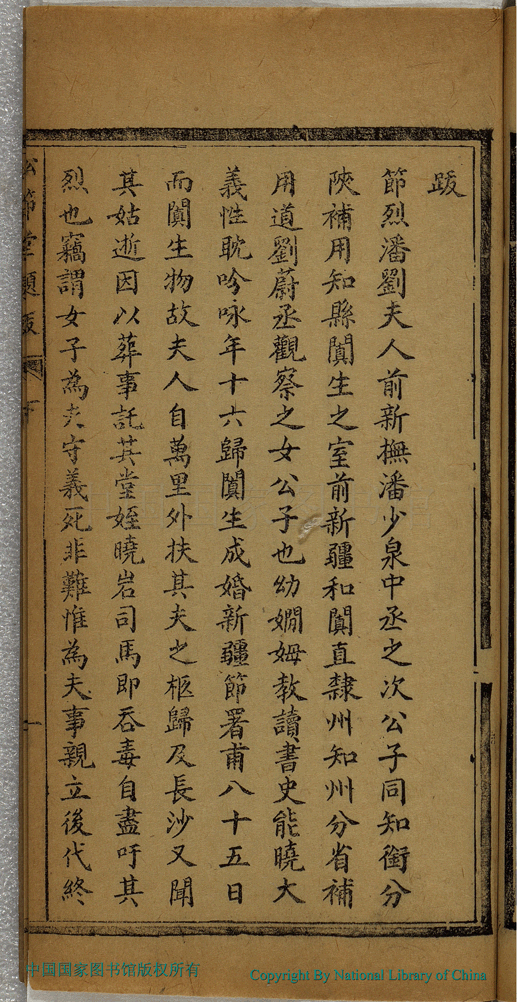 跋
節烈潘劉夫人前新撫潘少泉中丞之次公子同知銜分
陝補用知縣闐生之室前新疆和闐直隸州知州分省補
用道劉蔚丞觀察之女公子也幼嫻姆教讀書史能曉大
義性耽吟咏年十六歸闐生成婚新疆節署甫八十五日
而闐生物故夫人自萬里外扶其夫之柩歸及長沙又聞
其姑逝因以葬事託其堂姪曉岩司馬即吞毒自盡吁其
烈也竊謂女子為夫守義死非難惟為夫事親立後代終
節堂題跋
一
中国国家图书馆版权所有
Copyright By National Library of China